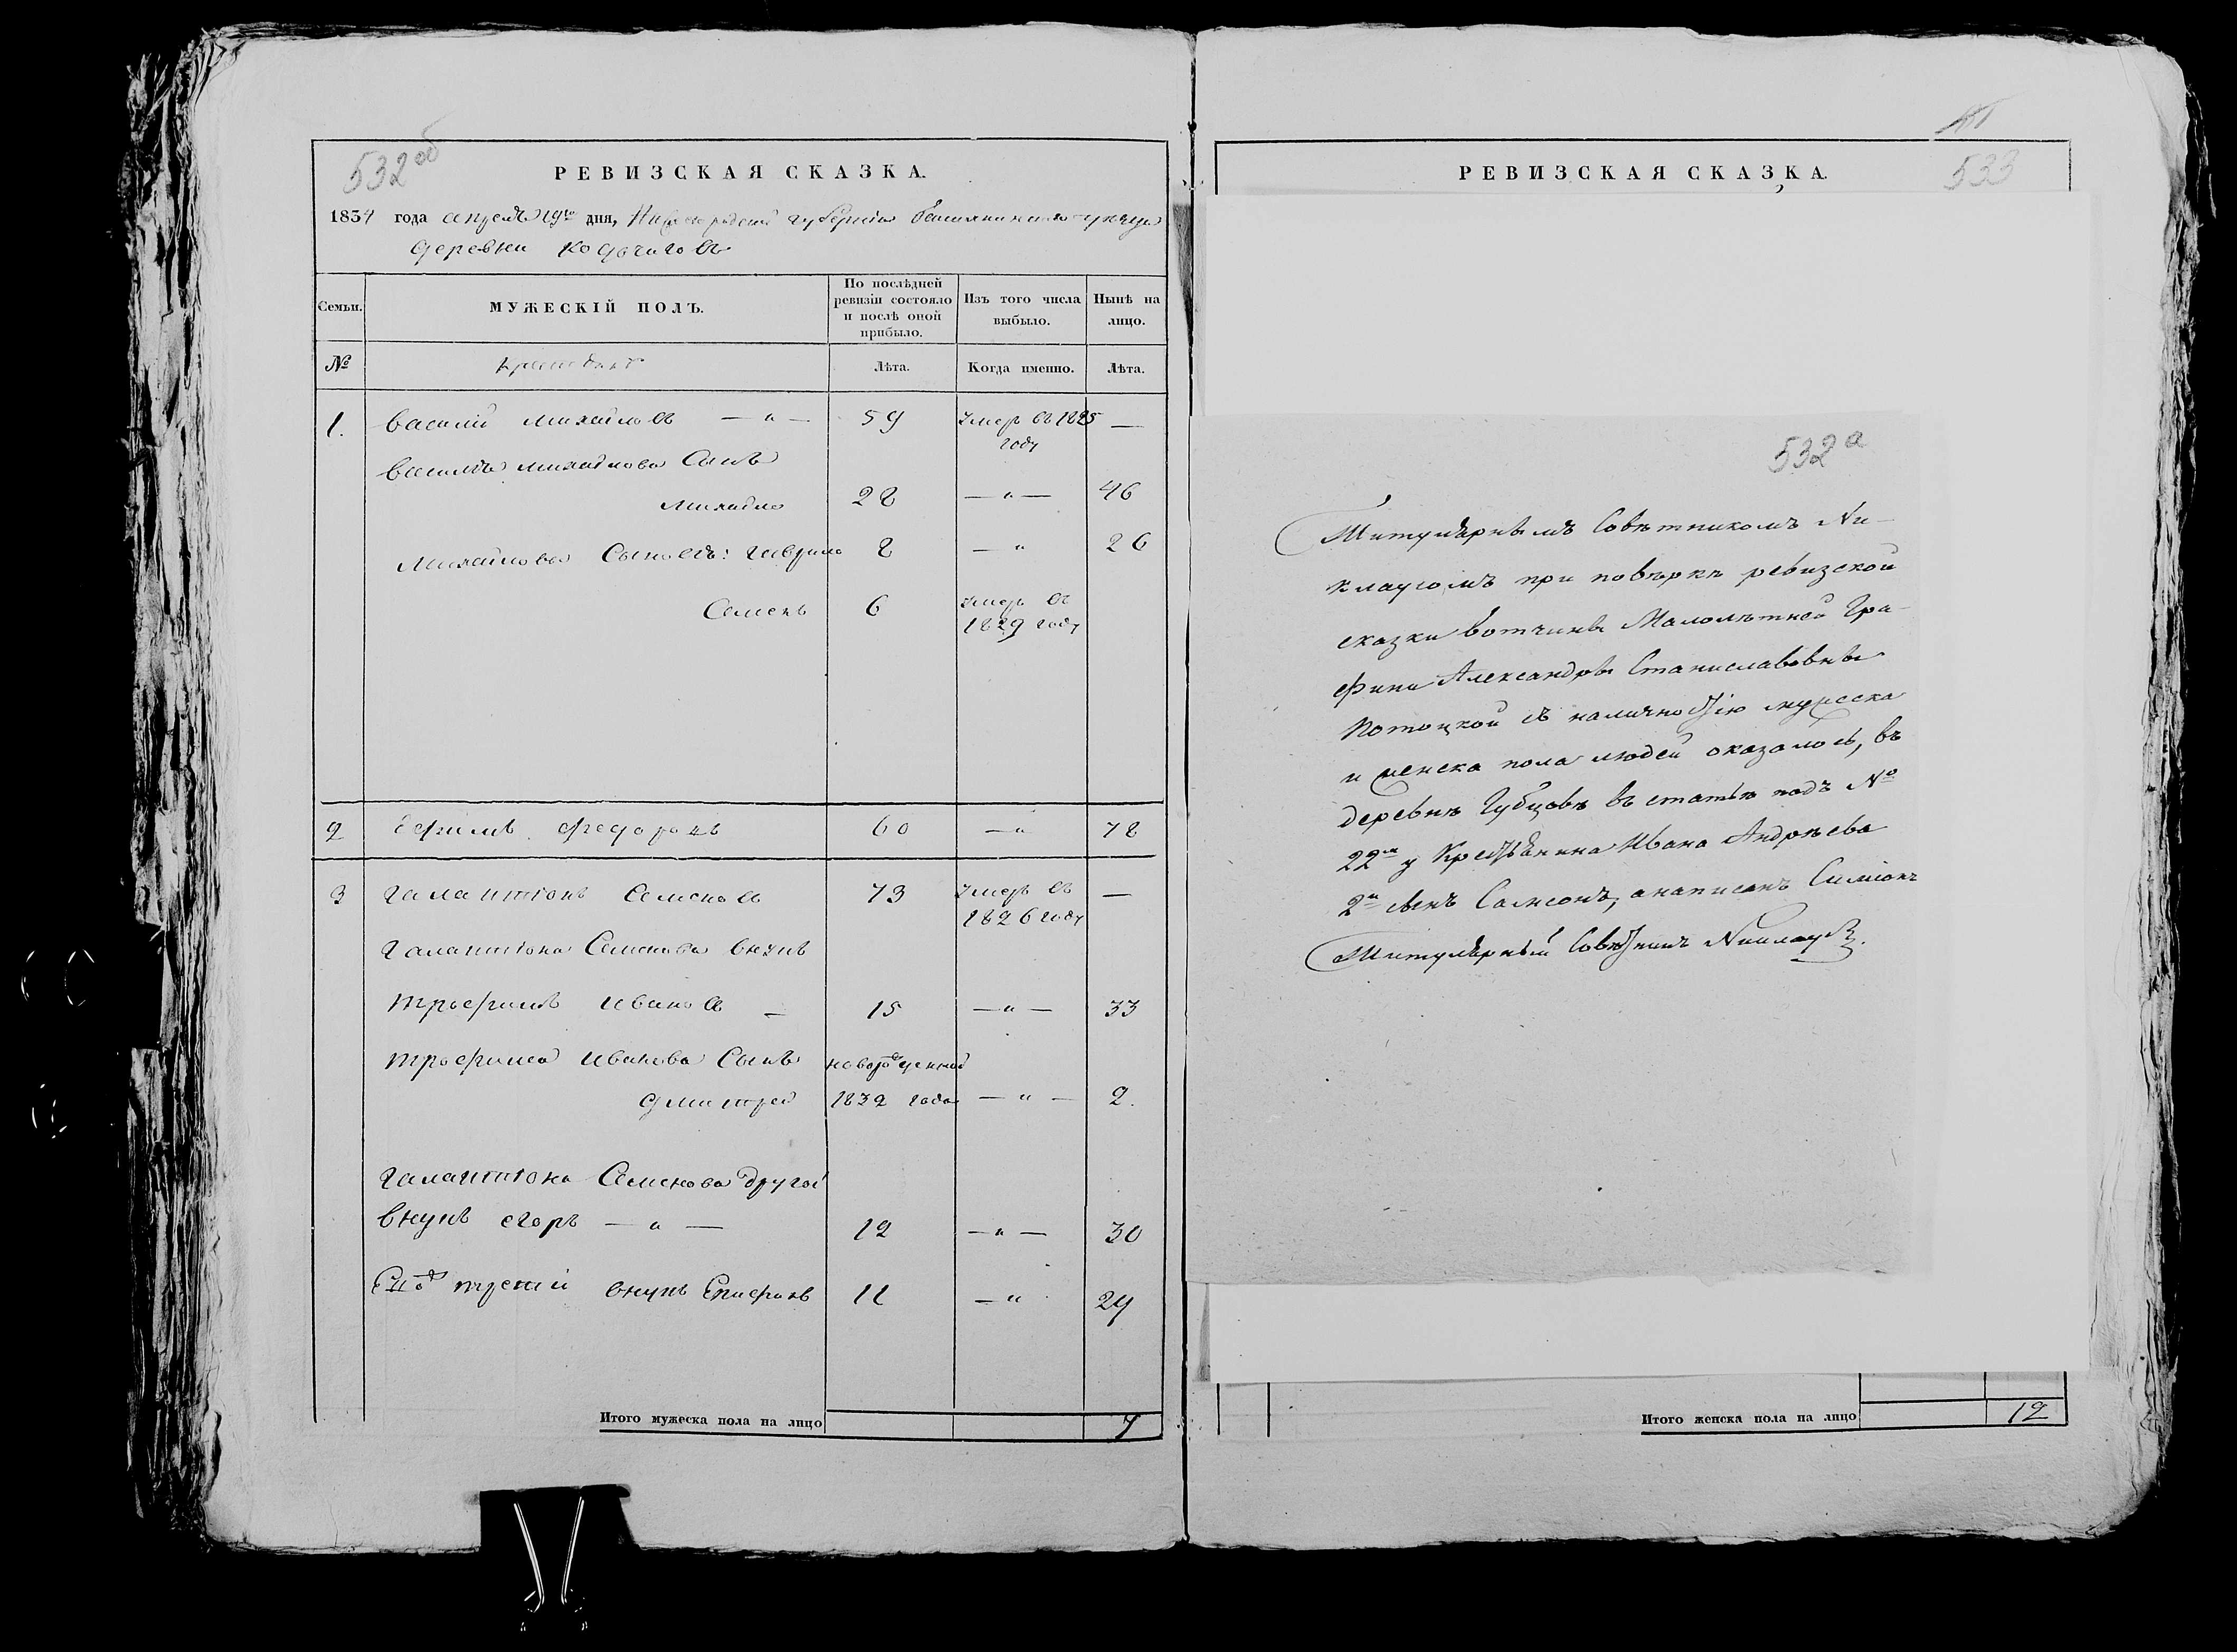 532 об
РЕВИЗСКАЯ СКАЗКА.
1834 года апреля 19го дня, Нижегородской губернии уезда
деревни
Семьи.
МУЖЕСКІЙ ПОЛЪ.
По послѣдней ревизіи состояло и послѣ оной прибыло.
Изъ того числа выбыло.
Нынѣ на лицо.
№
Лѣта.
Когда именно.
Лѣта.
1. василий михайловъ — " — 59 умеръ въ 1825 году —
василья михайлова Сынъ
михайло 28 — " — 46
михайловы Сыновья: гаврило 8 — " 26
Семенъ 6 умеръ въ 1829 году
2 Ефимъ федоровъ 60 — " 78
3 галактіонъ Семеновъ 73 умеръ въ 1826 году —
галактіона Семенова внукъ
трофимъ ивановъ — 15 — " — 33
трофима иванова Сынъ новорожденной
дмитрей 1832 года — " — 2.
галактіона Семенова другой
внукъ егоръ — " — 12 — " — 30
Его третий внукъ Епифанъ 11 — " 29
Итого мужеска пола на лицо 7
РЕВИЗСКАЯ СКАЗКА.
533
532 а
Титулярнымъ Совѣтникомъ Ни-
клаусомъ при повѣркѣ ревизской
сказки вотчины Малолѣтней Гра-
фини Александры Станиславовны
Потоцкой съ наличностію мужеска
и женска пола людей оказалось, въ
деревнѣ Губцовѣ въ статьѣ подъ №
22м у Крестьянина Ивана Андрѣева
2й сынъ Самсонъ, а написанъ Симіонъ
Титулярный Совѣтникъ Никлаусъ.
Итого женска пола на лицо 12